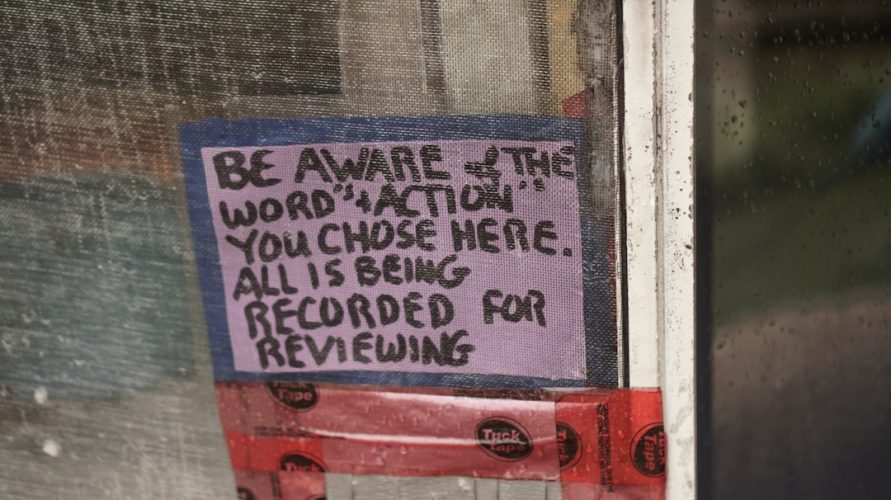 BE AWARE of THE
WORD"s+ACTION"
YOU CHOSE HERE.
ALL IS BEING
RECORDED FOR
REVIEWING
Tuck
Tape
Tuck
Tape
Tuck
Tape
Tuck
Tape
Tuck